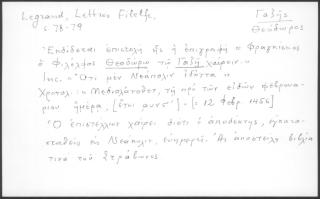 Legrand, Lettres Filelfe,
σ. 78-79
Γαζῆς
Θεόδωρος
Ἐκδίδεται ἐπιστολὴ ἧς ἡ ἐπιγραφὴ « Φραγκίσκος
ὁ Φιλέλφος Θεοδώρῳ τῷ Γαζῇ χαίρειν.»
Inc. «Ὅτι μὲν Νεάπολιν
Χρονολ: « Μεδιολάνοθεν, τῇ πρὸ τῶν εἰδῶν φεβρουα-
ρίων ἡμέρᾳ, [ἔτει αυνς'] - [: 12 Φεβρ. 1456]
Ὁ ἐπιστέλλων χαίρει διότι ὁ ἀποδέκτης, ἐγκατα-
σταθεὶς εἰς Νεάπολιν, εὐημερεῖ. Ἂς ἀποστείλῃ βιβλία
τινὰ τοῦ Στράβωνος